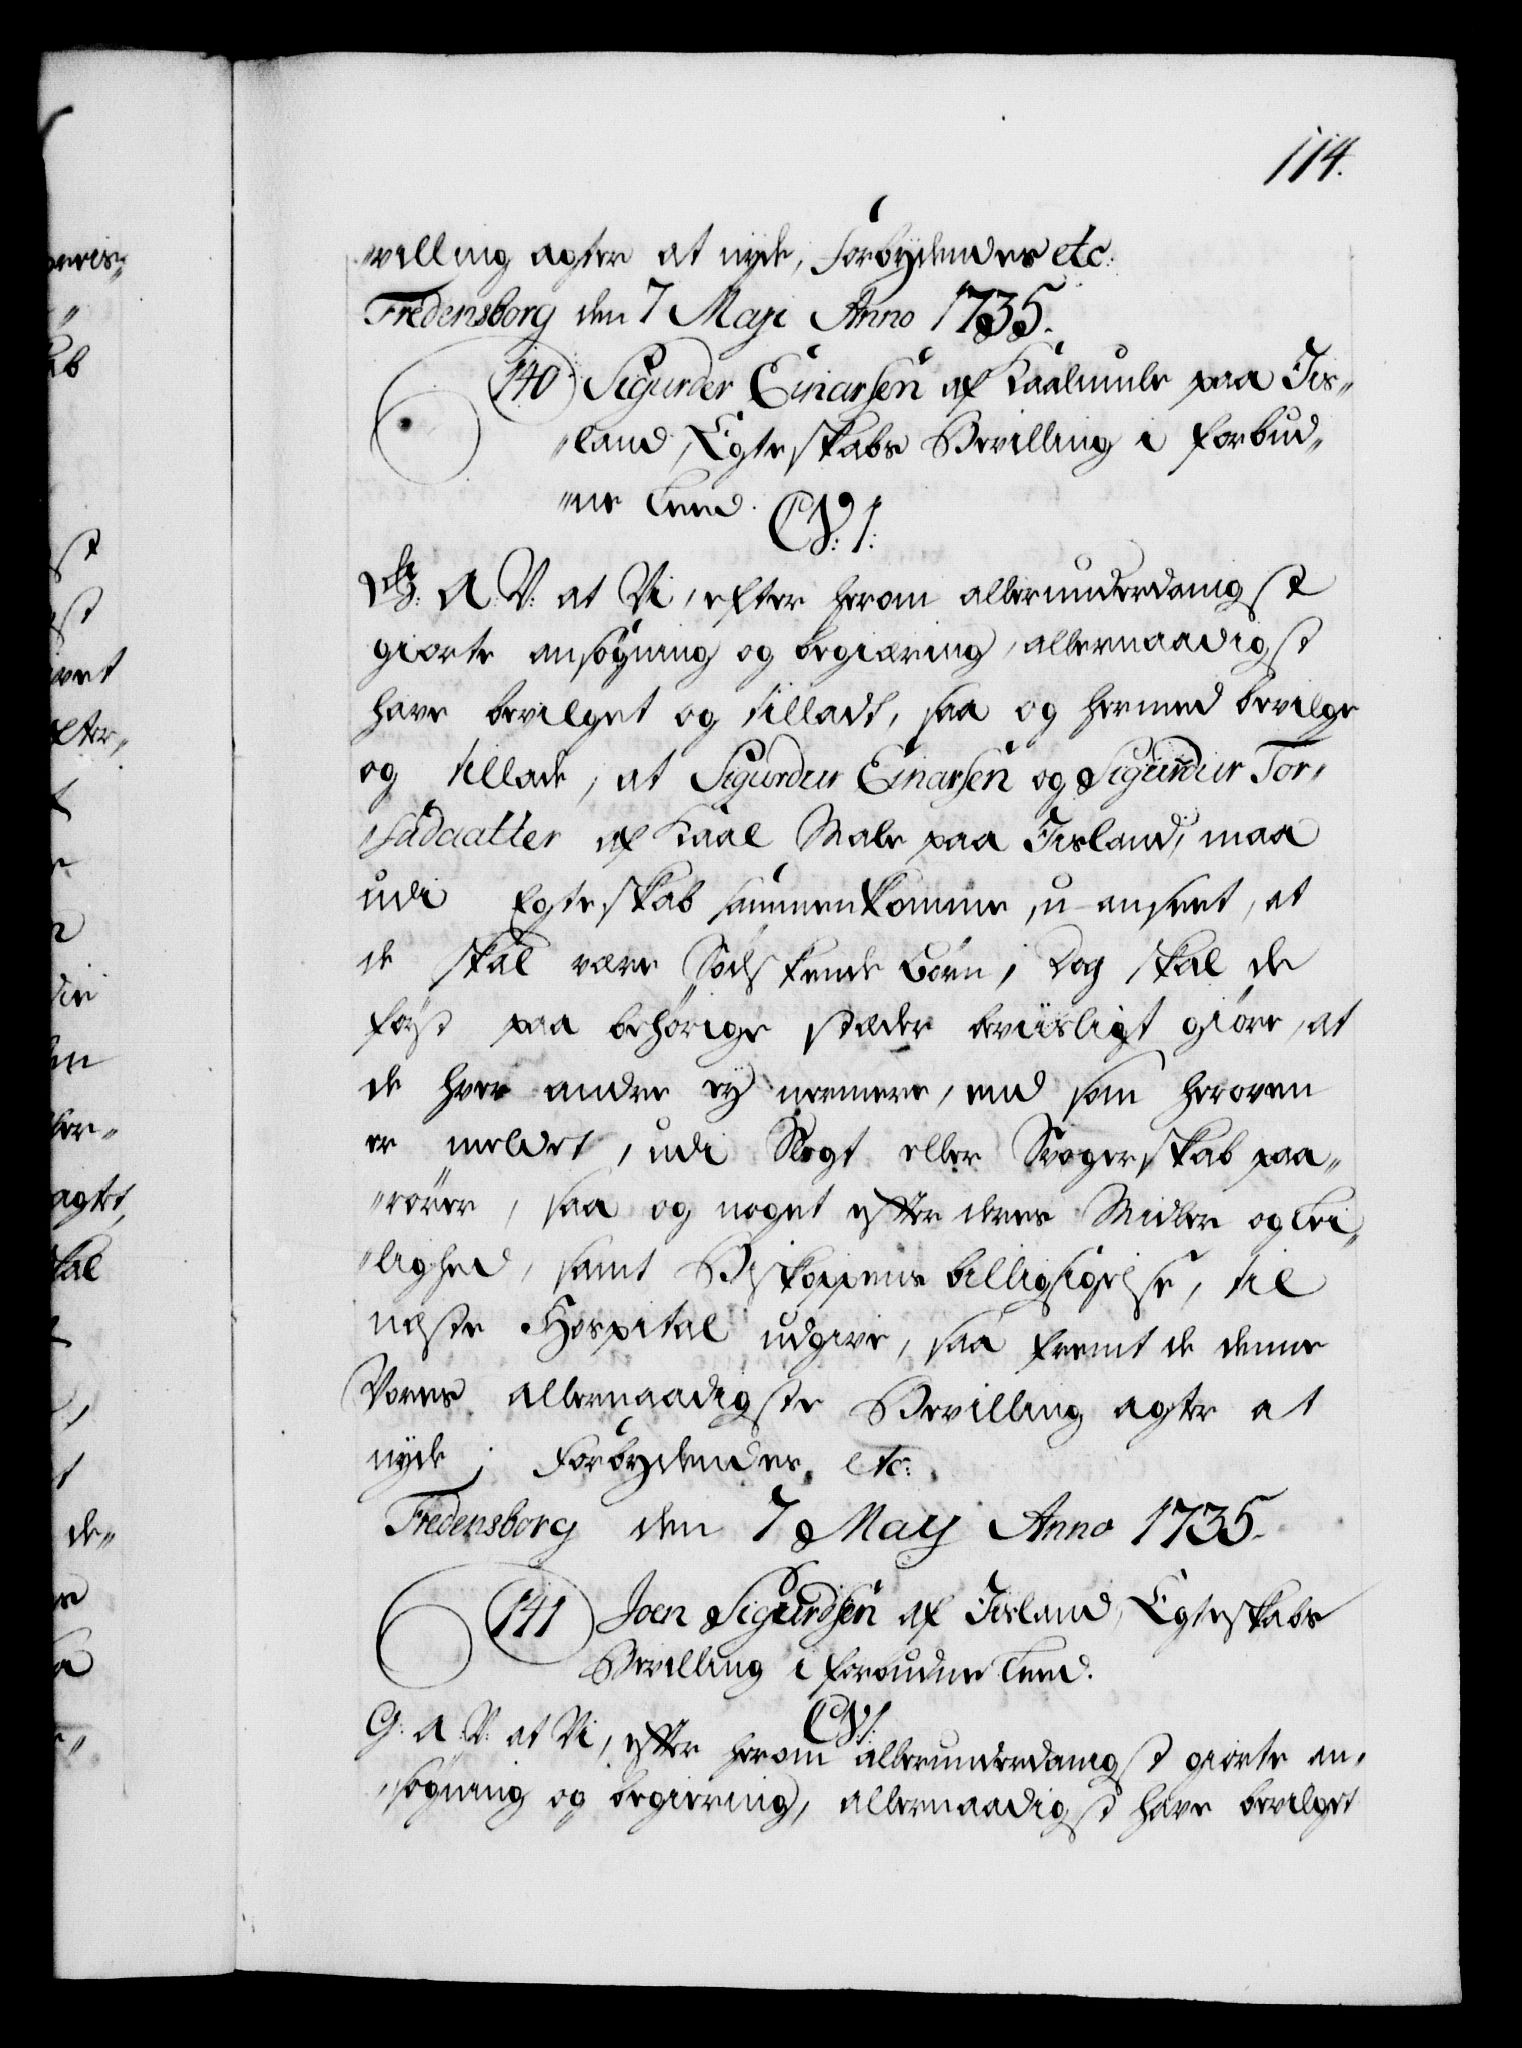 114.
„villing agter at nyde, Forbydendes etc:
Fredensborg den 7 Maji Anno 1735.
140 Sigurder Einarsen af Kaalmule paa Iis„
„land, Egteskabs Bevilling i forbud„
„ne Leed.
C. V. I:
G: A. V: at Vi, efter herom allerunderdanigst
giorte ansøgning og begiæring, allernaadigst
have bevilget og tilladt, saa og hermed bevilge
og tillade, at Sigurdur Einarsen og Sigurdur Tor„
„sudaatter af Kaal Male paa Iisland, maa
udi Egteskab sammenkomme, u-anseet, at
de skal være Södskende Börn, Dog skal de
först paa behörige stæder beviisligt giöre, at
de hver andre ey nermere, end som heroven
er meldet, udi Slegt eller Svogerskab paa„
„rörer, saa og noget efter deres Midler og Lei„
„lighed, samt Biskoppens billigsigelse, til
næste Hospital udgive, saa fremt de denne
Vores allernaadigste Bevilling agter at
nyde; Forbydendes etc:
Fredensborg den 7 Maij Anno 1735.
141 Joen Sigurdsen af Iisland, Egteskabs
Bevilling i forbudne Leed.
C. V. I:
G: A: V: at Vi, efter herom allerunderdanigst giorte an„
„søgning og begiering, allernaadigst have bevilget